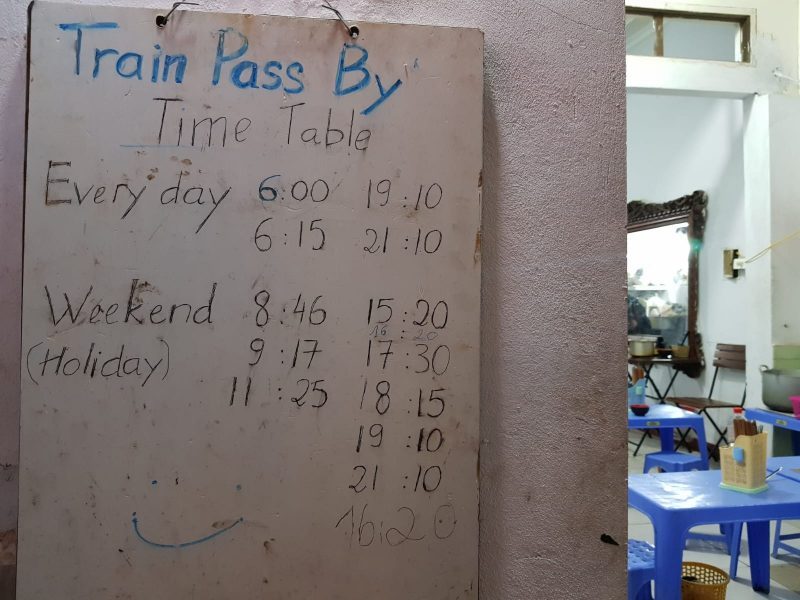 Train Pass By
Time Table
Every day 6:00 19:10
6:15 21:10
Weekend 8:46 15:20
16:20
(Holiday) 9:17 17:30
11:25 18:15
19:10
21:10
16:20